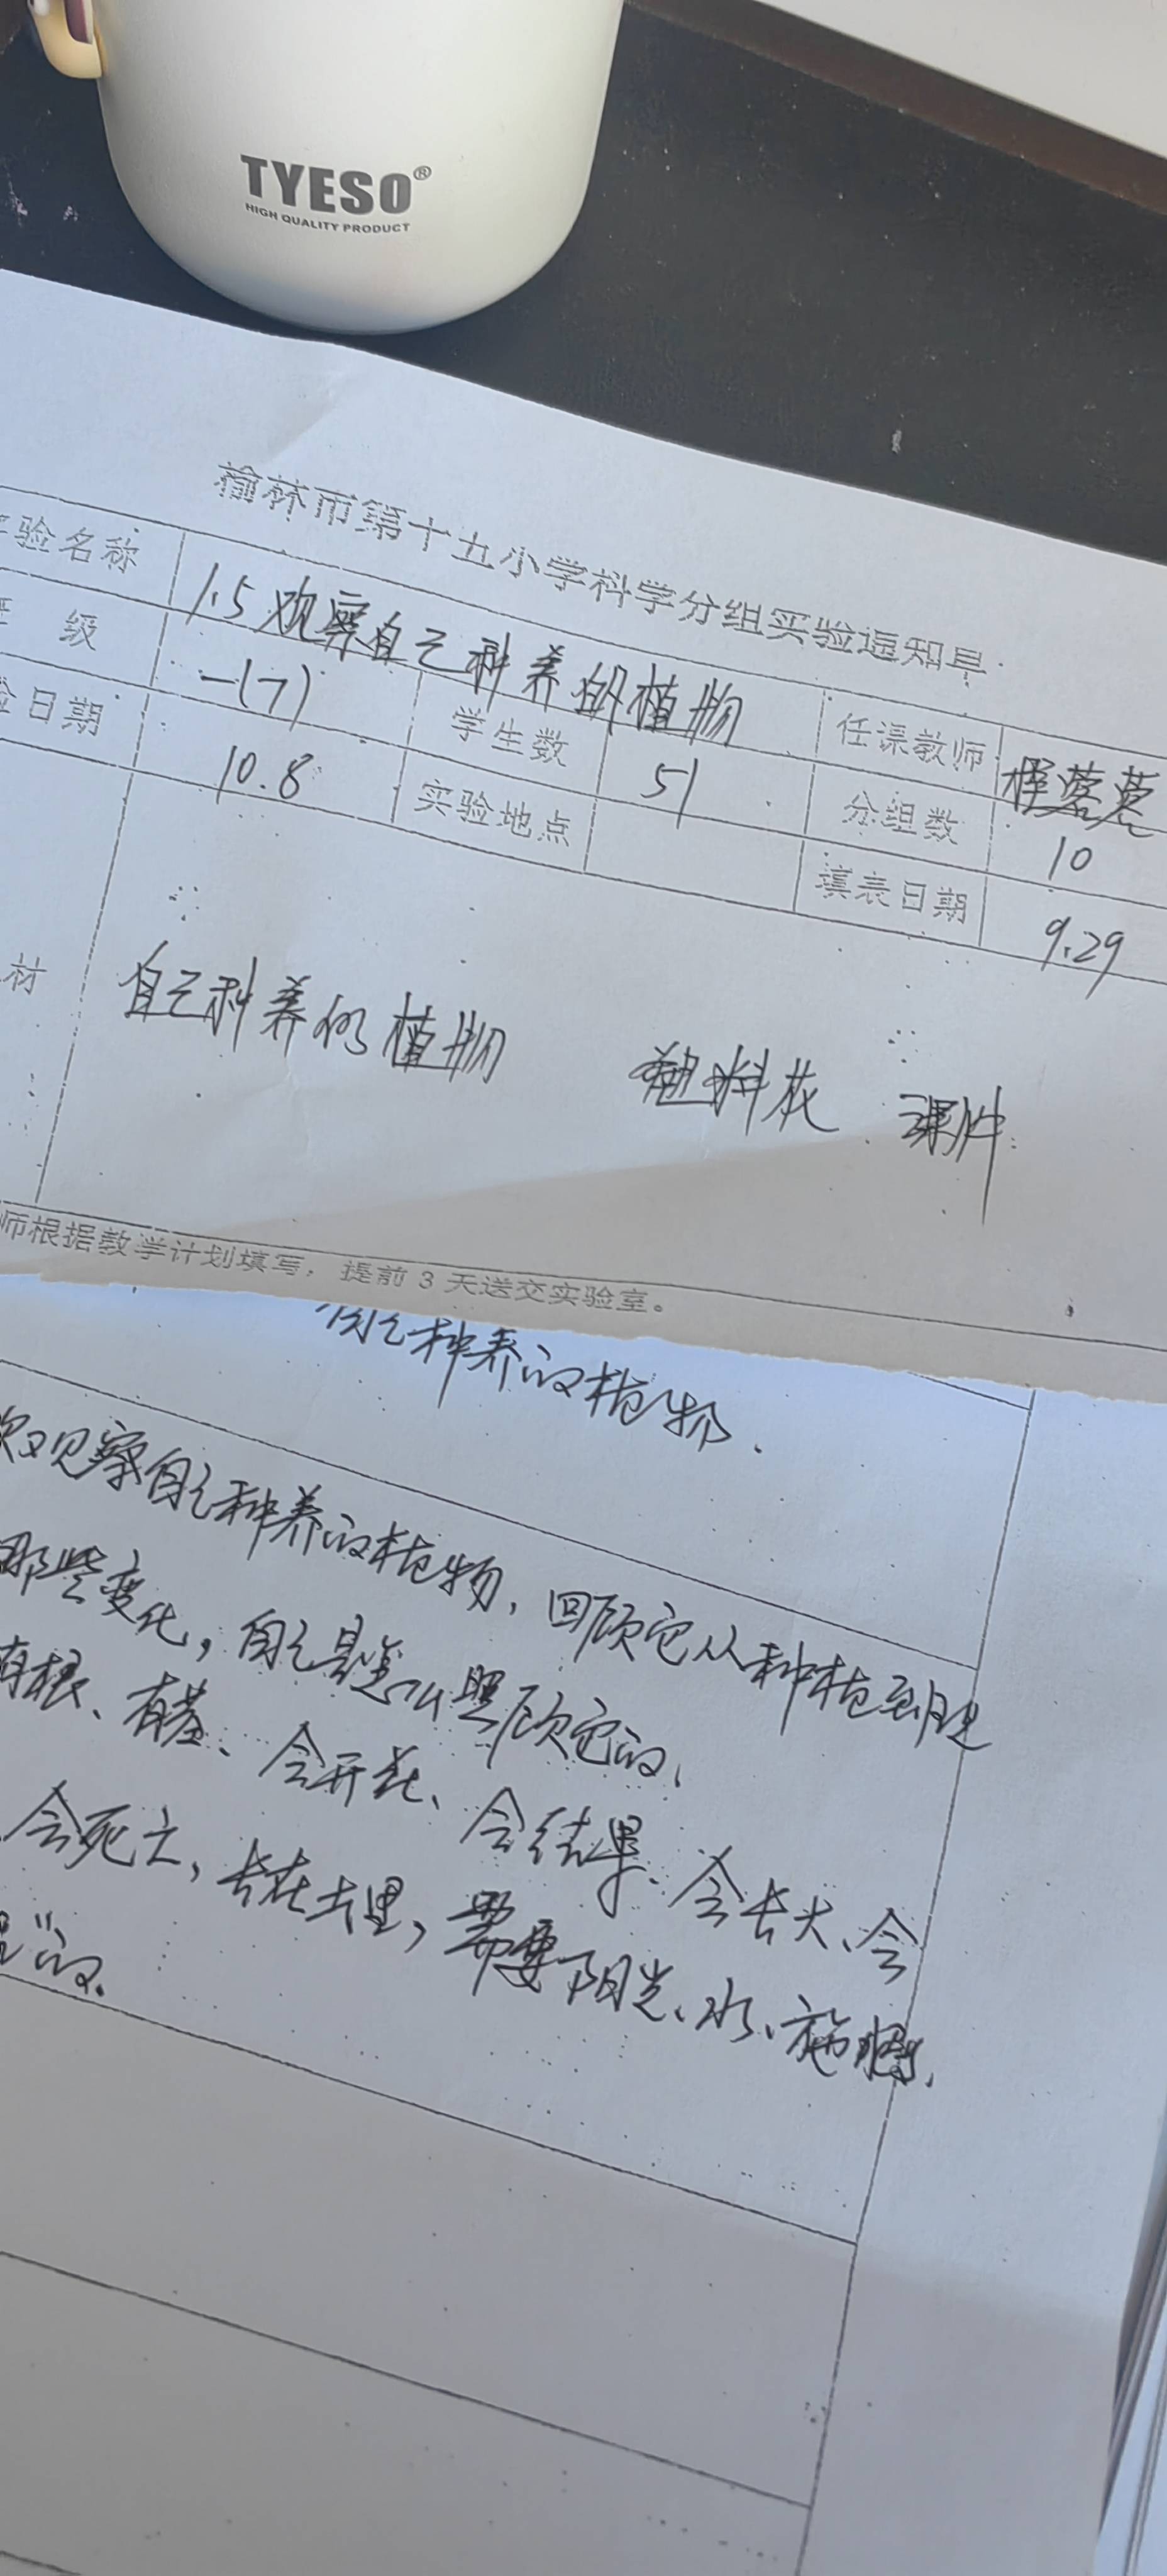 TYESO®
HIGH QUALITY PRODUCT
榆林市第十五小学科学分组实验通知单
验名称 1.5 观察自己种养的植物 任课教师
级 一(7) 学生数 51 分组数 10
日期 10.8 实验地点 填表日期 9.29
材 自己种养的植物 塑料花 课件
师根据教学计划填写，提前 3 天送交实验室。
自己种养的植物.
观察自己种养的植物，回顾它从种植到现
哪些变化，自己是怎么照顾它的、
有根、有茎、会开花、会结果、会长大、会
会死亡，长在土里，需要阳光、水、施肥、
”的、